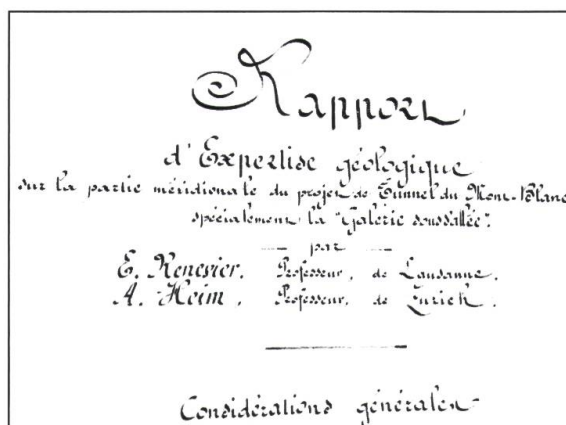 Rapport
d'Expertise géologique
sur la partie méridionale du projet de Tunnel du Mont-Blanc
spécialement la "Galerie
par
E. Renevier, Professeur, de Lausanne.
A. Heim, Professeur, de Zurich.
Considérations générales